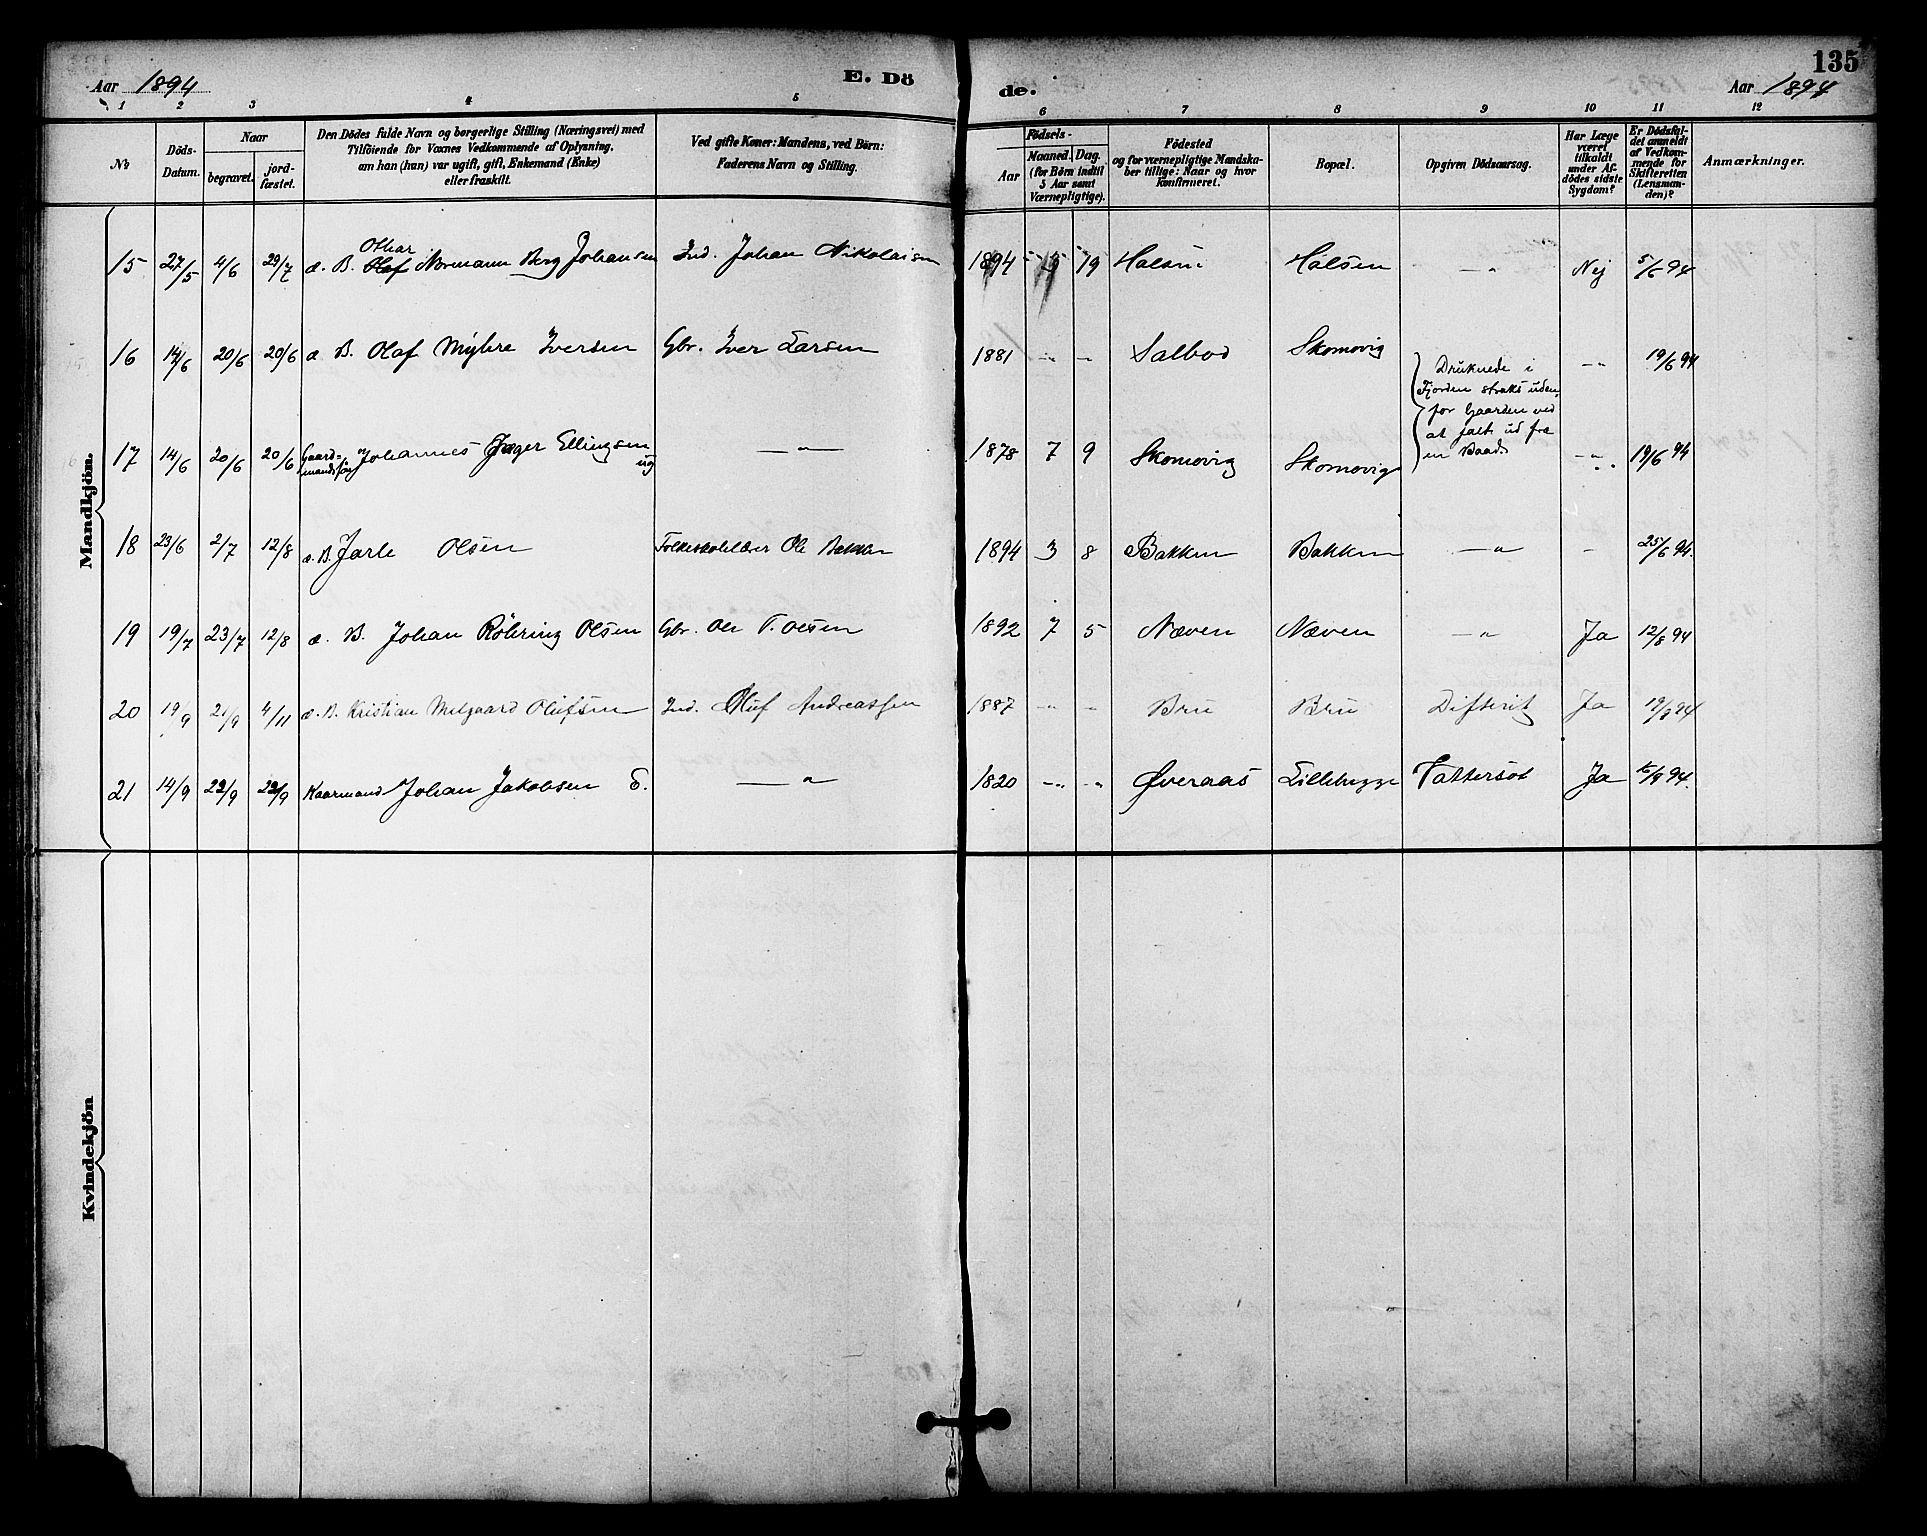 135
Aar 1894 E. Dö de. Aar 1894
1 2 3 4 5 6 7 8 9 10 11 12
No
Döds-Datum.
Naar
begravet.
jord-fæstet.
Den Dödes fulde Navn og borgerlige Stilling (Næringsvei) med
Tilföiende for Voxnes Vedkommende af Oplysning,
om han (hun) var ugift, gift, Enkemand (Enke)
eller fraskilt.
Ved gifte Koner: Mandens, ved Börn:
Faderens Navn og Stilling.
Födsels-
Aar
Maaned. Dag.
(for Börn indtil
5 Aar samt
Værnepligtige).
Födested
og for værnepligtige Mandska-
ber tillige: Naar og hvor
konfirmeret.
Bopæl.
Opgiven Dödsaarsag.
Har Læge
været
tilkaldt
under Af-
dödes sidste
Sygdom?
Er Dödsfal-
det anmeldt
af Vedkom-
mende for
Skifteretten
(Lensman-
den)?
Anmærkninger.
Mandkjön.
Othar
15 27/5 4/6 29/7 æ. B. Olaf Normann Berg Johansen Ind. Johan Nikolaisen 1894 5 19 Halsen Halsen -"- Nej 5/6 94
16 14/6 20/6 20/6 æ. B. Olaf Myhre Iversen Gbr. Iver Larsen 1881 -"- - Salbod Skomovig -"- 19/6 94
Druknede i
Fjorden straks uden-
for Gaarden ved
at falt ud fra
en Baad.
17 14/6 20/6 20/6 Gaard-
mandssøn Johannes Jæger Ellingsen ug -"- 1878 7 9 Skomovig Skomovig -"- 19/6 94
18 23/6 2/7 12/8 æ. B. Jarle Olsen Folkeskolelærer Ole Bakken 1894 3 8 Bakken Bakken -"- - 25/6 94.
19 19/7 23/7 12/8 æ. B. Johan Röhring Olsen Gbr. Ole T. Olsen 1892 7 5 Næven Næven -"- Ja 12/8 94
20 19/9 21/9 4/11 æ. B. Kristian Melgaard Olufsen Ind. Oluf Andreassen 1887 -"- " Bru Bru Difterit Ja 19/9 94
21 14/9 22/9 22/9 Kaarmand Johan Jakobsen E. -"- 1820 -"- -"- Øveraas Lillebugge Tattersot Ja 15/9 94.
Kvindekjön